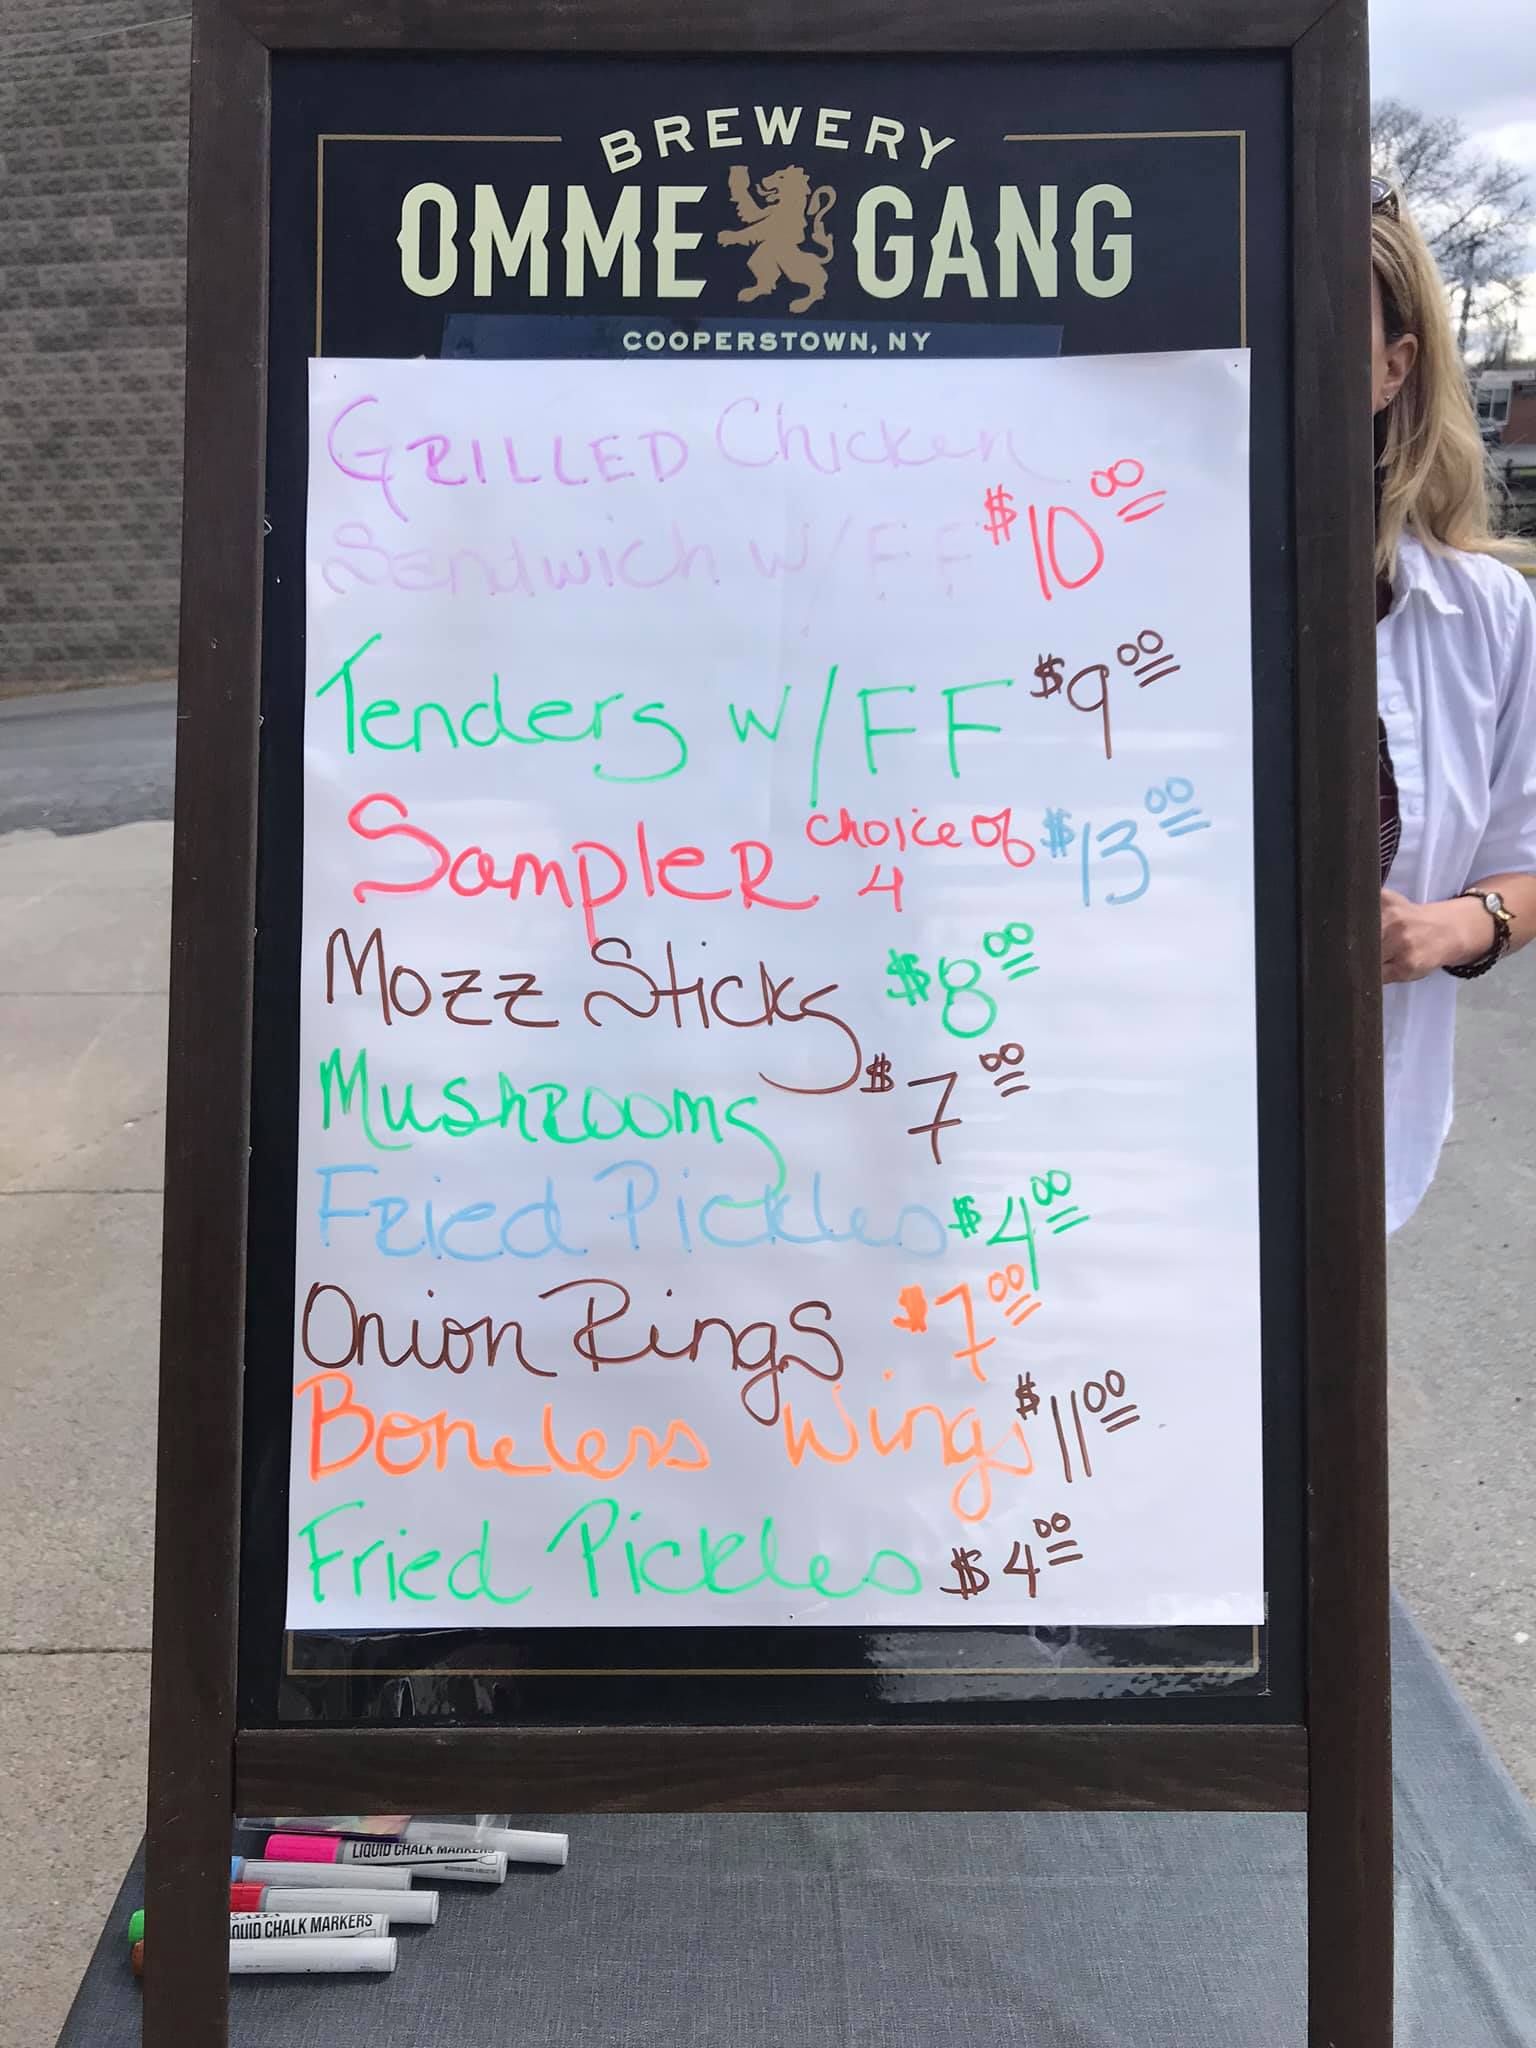 BREWERY
OMMEGANG
COOPERSTOWN, NY
GRILLED Chicken
Sandwich w/FF $10.00
Tenders w/FF $9.00
SampleR choice of 4 $13.00
Mozz Sticks $8.00
MushRooms $7.00
FRied Pickles $4.00
Onion Rings $7.00
Boneless Wings $11.00
Fried Pickles $4.00
LIQUID CHALK MARKERS
QUID CHALK MARKERS